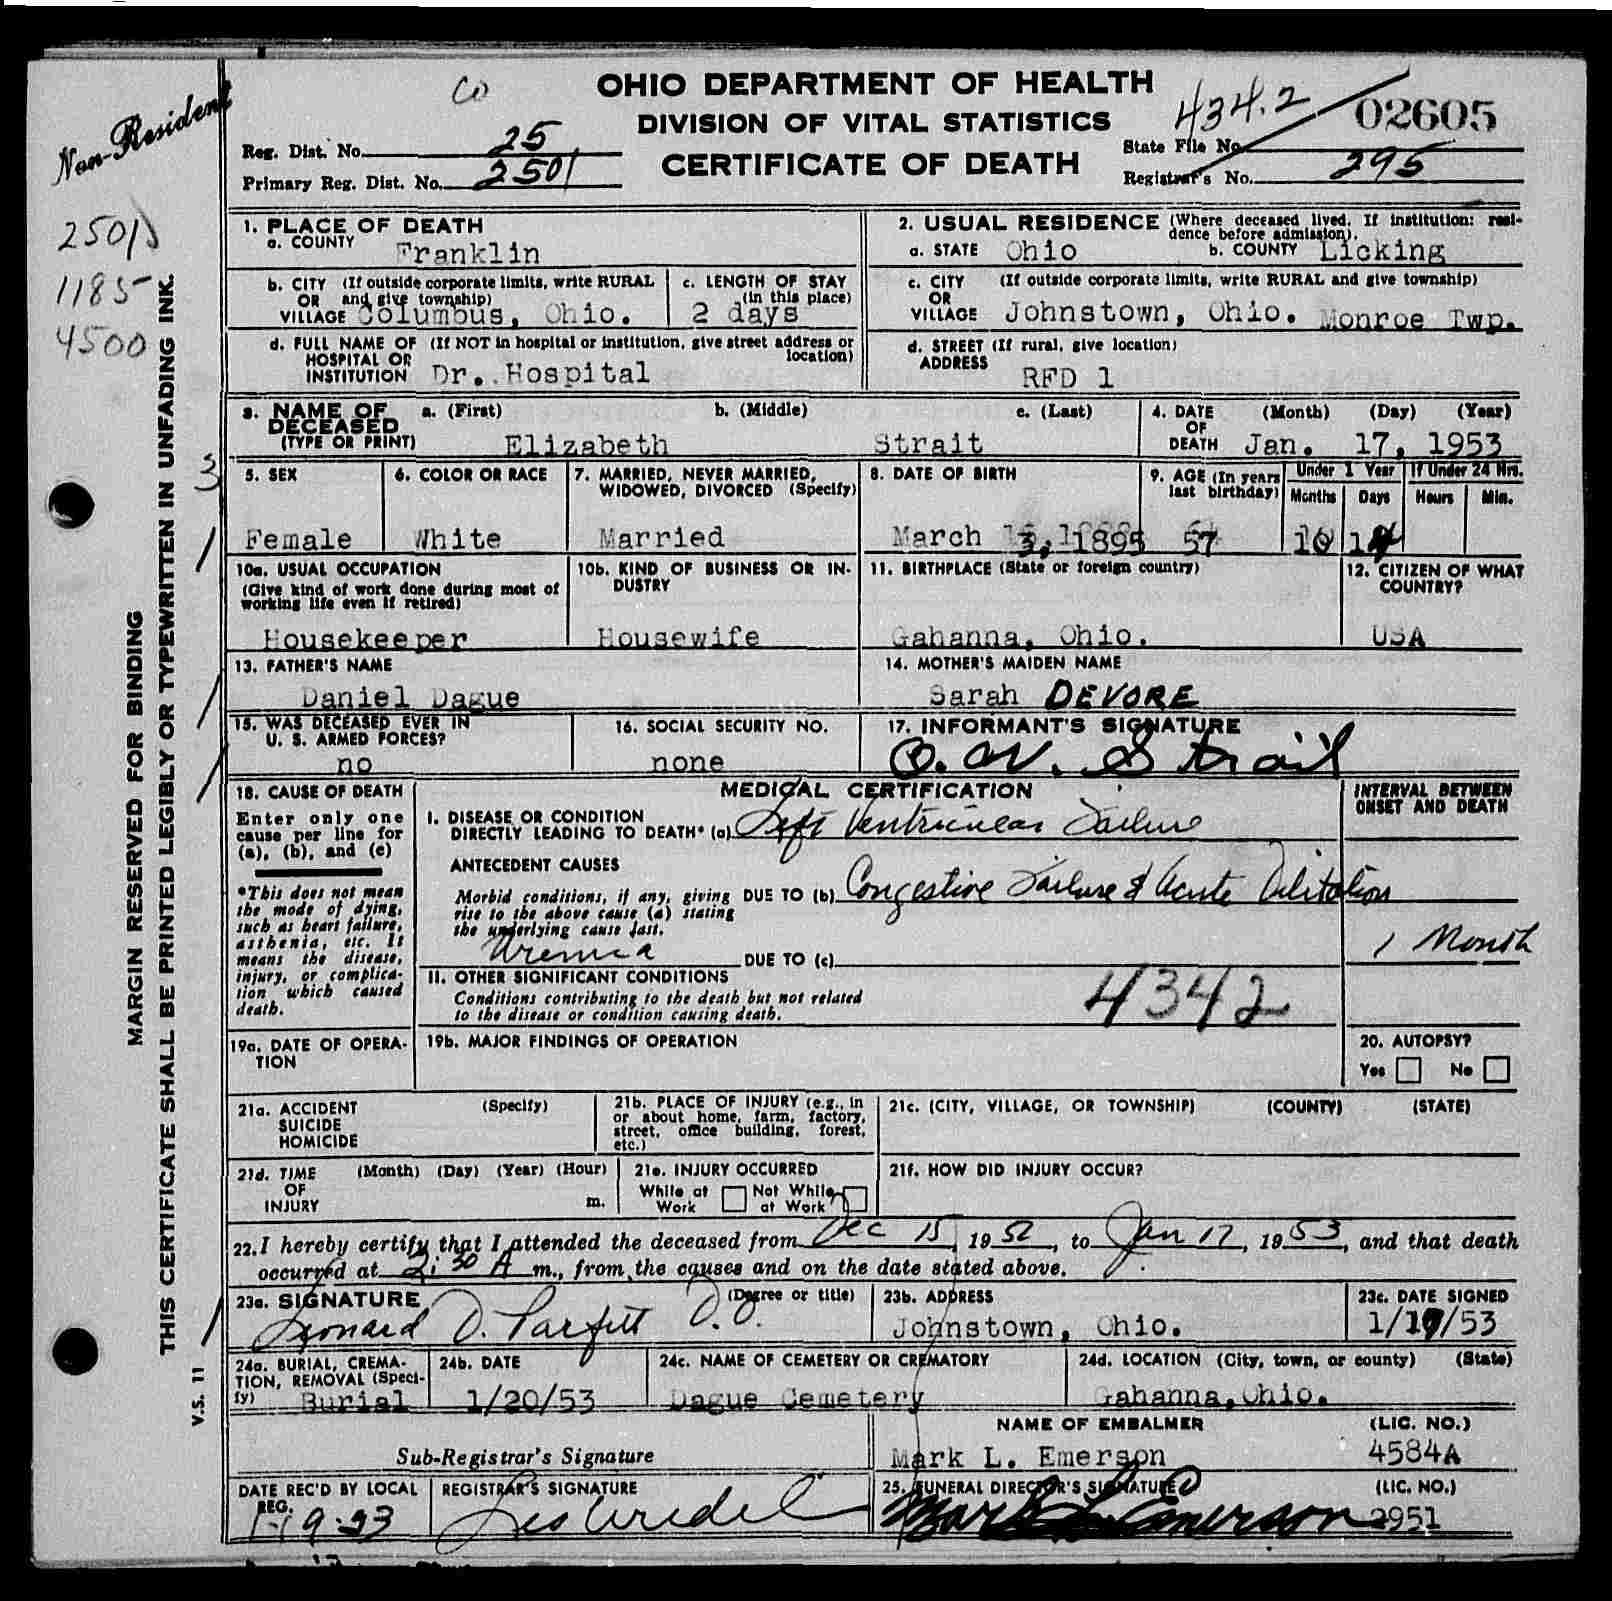 Non-Resident
2501
1185
4500
MARGIN RESERVED FOR BINDING
THIS CERTIFICATE SHALL BE PRINTED LEGIBLY OR TYPEWRITTEN IN UNFADING INK.
V.S. 11
3
Co
OHIO DEPARTMENT OF HEALTH
DIVISION OF VITAL STATISTICS
CERTIFICATE OF DEATH
Reg. Dist. No. 25
Primary Reg. Dist. No. 2501
434.2
State File No. 02605
Registrar's No. 295
1. PLACE OF DEATH
a. COUNTY Franklin
b. CITY (If outside corporate limits, write RURAL
OR and give township)
VILLAGE Columbus, Ohio.
c. LENGTH OF STAY
(in this place)
2 days
d. FULL NAME OF (If NOT in hospital or institution, give street address or
HOSPITAL OR location)
INSTITUTION Dr. Hospital
2. USUAL RESIDENCE (Where deceased lived. If institution: resi-
dence before admission).
a. STATE Ohio b. COUNTY Licking
c. CITY (If outside corporate limits, write RURAL and give township)
OR
VILLAGE Johnstown, Ohio. Monroe Twp.
d. STREET (If rural, give location)
ADDRESS RFD 1
3. NAME OF a. (First) b. (Middle) c. (Last)
DECEASED
(TYPE OR PRINT) Elizabeth Strait
4. DATE (Month) (Day) (Year)
OF
DEATH Jan. 17, 1953
5. SEX
Female
6. COLOR OR RACE
White
7. MARRIED, NEVER MARRIED,
WIDOWED, DIVORCED (Specify)
Married
8. DATE OF BIRTH
March 3, 1895
9. AGE (In years
last birthday)
57
Under 1 Year If Under 24 Hrs.
Months Days Hours Min.
10
10a. USUAL OCCUPATION
(Give kind of work done during most of
working life even if retired)
Housekeeper
10b. KIND OF BUSINESS OR IN-
DUSTRY
Housewife
11. BIRTHPLACE (State or foreign country)
Gahanna, Ohio.
12. CITIZEN OF WHAT
COUNTRY?
USA
13. FATHER'S NAME
Daniel Dague
14. MOTHER'S MAIDEN NAME
Sarah DEVORE
15. WAS DECEASED EVER IN
U. S. ARMED FORCES?
no
16. SOCIAL SECURITY NO.
none
17. INFORMANT'S SIGNATURE
O. W. Strait
18. CAUSE OF DEATH
Enter only one
cause per line for
(a), (b), and (c)
*This does not mean
the mode of dying,
such as heart failure,
asthenia, etc. It
means the disease,
injury, or complica-
tion which caused
death.
MEDICAL CERTIFICATION
INTERVAL BETWEEN
ONSET AND DEATH
I. DISEASE OR CONDITION
DIRECTLY LEADING TO DEATH* (a) Left Ventricular Failure
ANTECEDENT CAUSES
Morbid conditions, if any, giving DUE TO (b) Congestive Failure & Acute Dilitation
rise to the above cause (a) stating
the underlying cause last.
Uremia DUE TO (c)
1 Month
II. OTHER SIGNIFICANT CONDITIONS
Conditions contributing to the death but not related
to the disease or condition causing death.
4342
19a. DATE OF OPERA-
TION
19b. MAJOR FINDINGS OF OPERATION
20. AUTOPSY?
Yes No
21a. ACCIDENT (Specify)
SUICIDE
HOMICIDE
21b. PLACE OF INJURY (e.g., in
or about home, farm, factory,
street, office building, forest,
etc.)
21c. (CITY, VILLAGE, OR TOWNSHIP) (COUNTY) (STATE)
21d. TIME (Month) (Day) (Year) (Hour)
OF
INJURY m.
21e. INJURY OCCURRED
While at Not While
Work at Work
21f. HOW DID INJURY OCCUR?
22. I hereby certify that I attended the deceased from Dec 15, 1952, to Jan 17, 1953, and that death
occurred at 2:30 A m., from the causes and on the date stated above.
23a. SIGNATURE (Degree or title)
Leonard D. Parfitt D.O.
23b. ADDRESS
Johnstown, Ohio.
23c. DATE SIGNED
1/19/53
24a. BURIAL, CREMA-
TION, REMOVAL (Speci-
fy) Burial
24b. DATE
1/20/53
24c. NAME OF CEMETERY OR CREMATORY
Dague Cemetery
24d. LOCATION (City, town, or county) (State)
Gahanna, Ohio.
Sub-Registrar's Signature
NAME OF EMBALMER (LIC. NO.)
Mark L. Emerson 4584A
DATE REC'D BY LOCAL
REG.
REGISTRAR'S SIGNATURE
25. FUNERAL DIRECTOR'S SIGNATURE (LIC. NO.)
Mark L. Emerson 2951